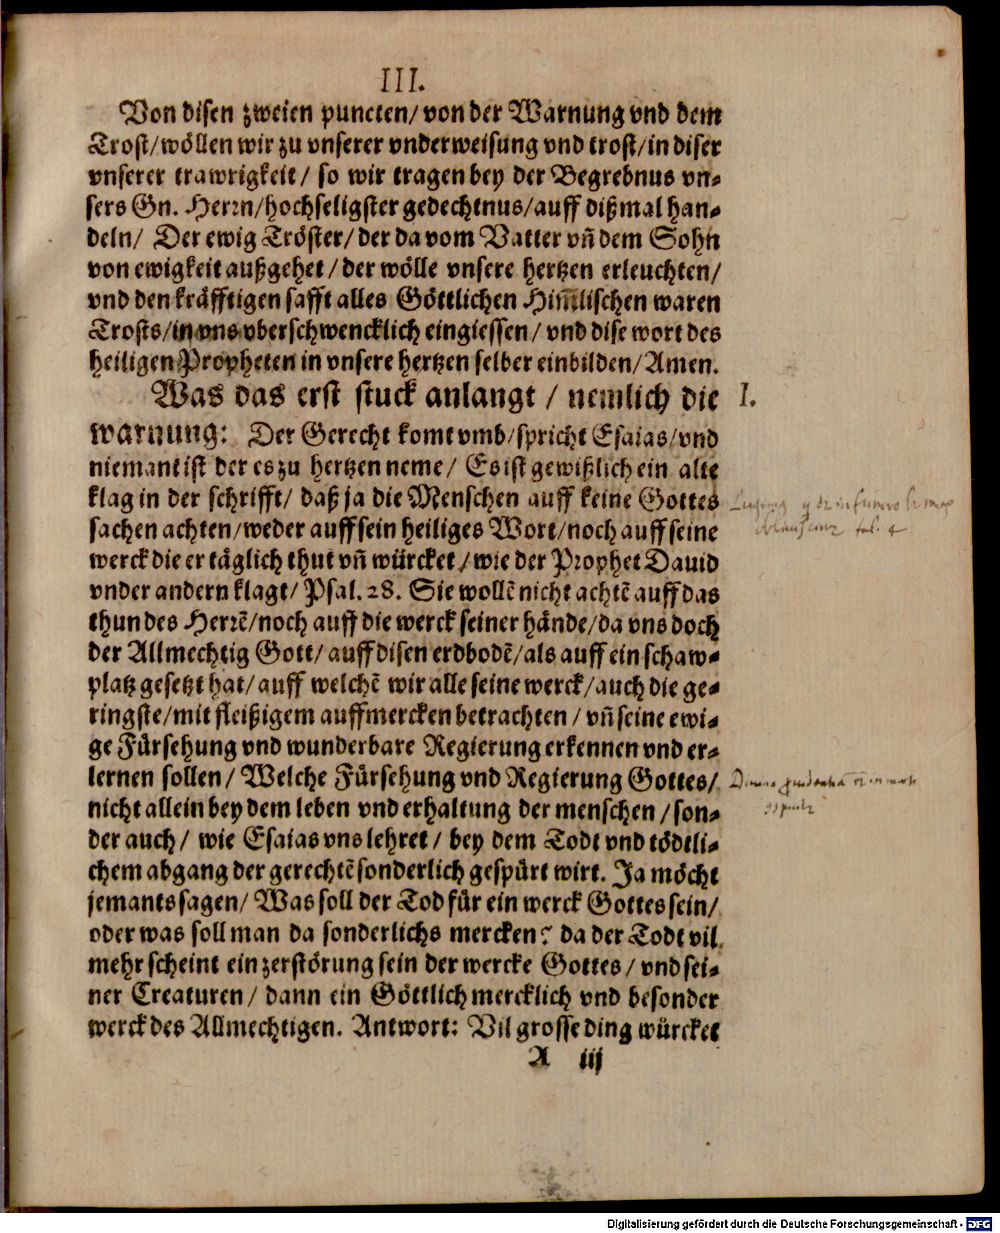 III.
Von disen zweien puncten/ von der Warnung vnd dem
Trost/ wöllen wir zu vnserer vnderweisung vnd trost/ in diser
vnserer trawrigkeit/ so wir tragen bey der Begrebnus vn-
sers Gn. Herrn/ hochseligster gedechtnus/ auff dißmal han-
deln/ Der ewig Tröster/ der da vom Vatter vñ dem Sohn
von ewigkeit außgehet/ der wölle vnsere hertzen erleuchten/
vnd den kräfftigen safft alles Göttlichen Him̃lischen waren
Trosts/ in vns vberschwencklich eingiessen/ vnd dise wort des
heiligen Propheten in vnsere hertzen selber einbilden/ Amen.
Was das erst stuck anlangt/ nemlich die I.
warnung: Der Gerecht komt vmb/ spricht Esaias/ vnd
niemant ist der es zu hertzen neme/ Es ist gewißlich ein alte
klag in der schrifft/ daß ja die Menschen auff keine Gottes
sachen achten/ weder auff sein heiliges Wort/ noch auff seine
werck die er täglich thut vñ würcket/ wie der Prophet Dauid
vnder andern klagt/ Psal. 28. Sie wollẽ nicht achtẽ auff das
thun des Herrẽ/ noch auff die werck seiner hände/ da vns doch
der Allmechtig Gott/ auff disen erdbodẽ/ als auff ein schaw-
platz gesetzt hat/ auff welchẽ wir alle seine werck/ auch die ge-
ringste/ mit fleißigem auffmercken betrachten/ vñ seine ewi-
ge Fürsehung vnd wunderbare Regierung erkennen vnd er-
lernen sollen/ Welche Fürsehung vnd Regierung Gottes/
nicht allein bey dem leben vnd erhaltung der menschen/ son-
der auch/ wie Esaias vns lehret/ bey dem Todt vnd tödtli-
chem abgang der gerechtẽ sonderlich gespürt wirt. Ja möcht
jemants sagen/ Was soll der Tod für ein werck Gottes sein/
oder was soll man da sonderlichs mercken? da der Todt vil
mehr scheint ein zerstörung sein der wercke Gottes/ vnd sei-
ner Creaturen/ dann ein Göttlich mercklich vnd besonder
werck des Allmechtigen. Antwort: Vil grosse ding würcket
A iij
Digitalisierung gefördert durch die Deutsche Forschungsgemeinschaft - DFG